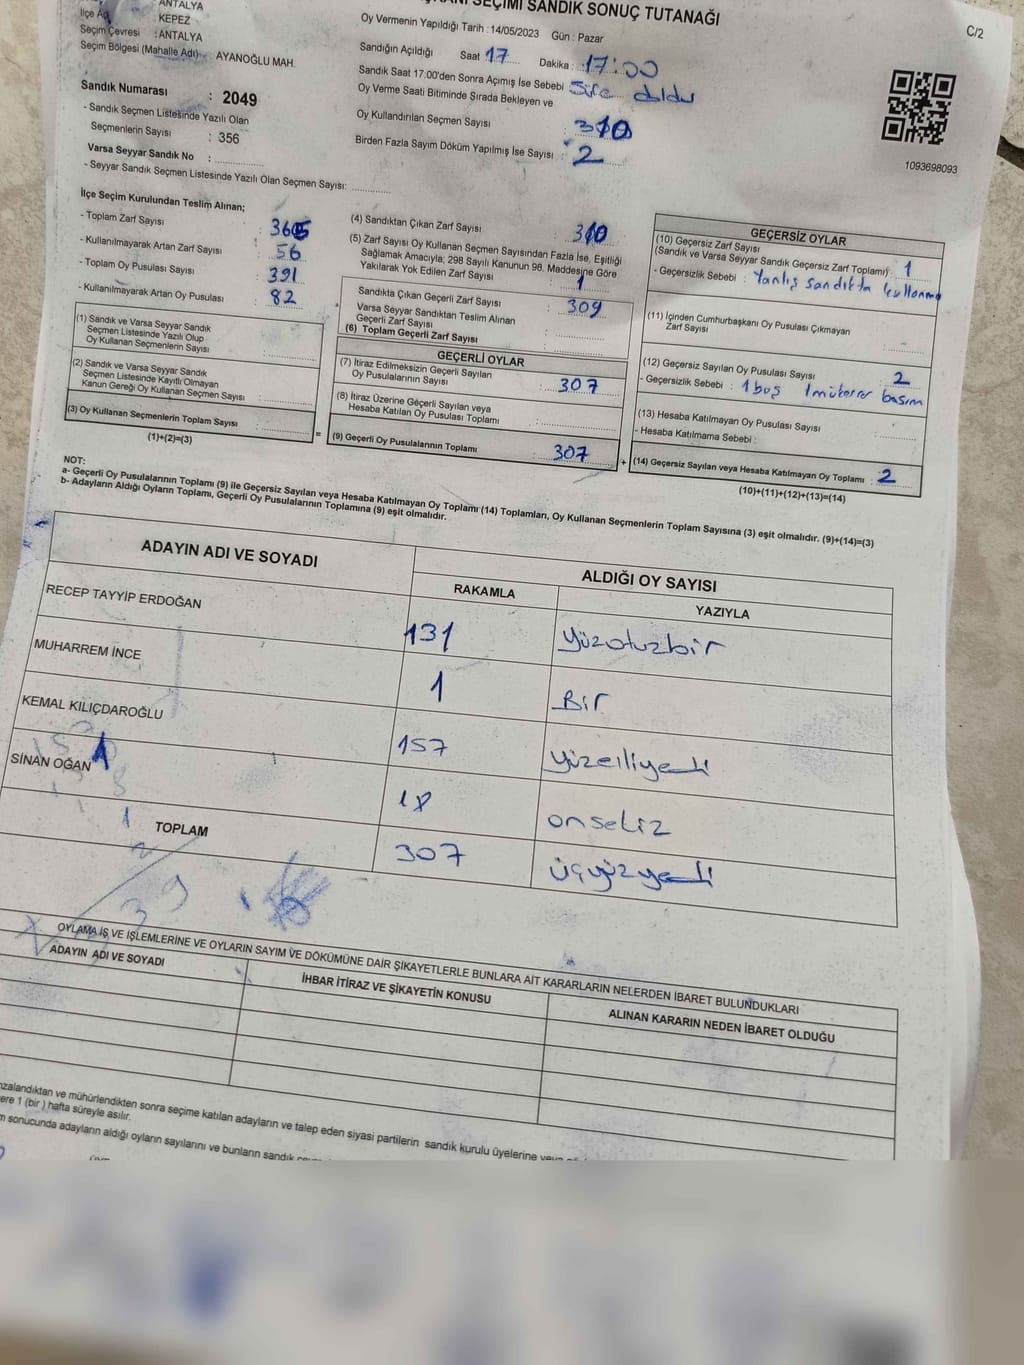 SEÇİMİ SANDIK SONUÇ TUTANAĞI
C/2
ANTALYA
İlçe Adı KEPEZ
Seçim Çevresi : ANTALYA
Seçim Bölgesi (Mahalle Adı) AYANOĞLU MAH.
Oy Vermenin Yapıldığı Tarih : 14/05/2023 Gün : Pazar
Sandığın Açıldığı Saat 17 Dakika : 17:00
Sandık Saat 17:00'den Sonra Açımış İse Sebebi Süre doldu
Oy Verme Saati Bitiminde Sırada Bekleyen ve
Oy Kullandırılan Seçmen Sayısı : 310
Birden Fazla Sayım Döküm Yapılmış İse Sayısı : 2
1093698093
Sandık Numarası : 2049
- Sandık Seçmen Listesinde Yazılı Olan
Seçmenlerin Sayısı : 356
Varsa Seyyar Sandık No :
- Seyyar Sandık Seçmen Listesinde Yazılı Olan Seçmen Sayısı:
İlçe Seçim Kurulundan Teslim Alınan;
- Toplam Zarf Sayısı : 365
- Kullanılmayarak Artan Zarf Sayısı : 56
- Toplam Oy Pusulası Sayısı : 391
- Kullanılmayarak Artan Oy Pusulası : 82
(1) Sandık ve Varsa Seyyar Sandık
Seçmen Listesinde Yazılı Olup
Oy Kullanan Seçmenlerin Sayısı :
(2) Sandık ve Varsa Seyyar Sandık
Seçmen Listesinde Kayıtlı Olmayan
Kanun Gereği Oy Kullanan Seçmen Sayısı :
(3) Oy Kullanan Seçmenlerin Toplam Sayısı :
(1)+(2)=(3)
(4) Sandıktan Çıkan Zarf Sayısı : 310
(5) Zarf Sayısı Oy Kullanan Seçmen Sayısından Fazla İse, Eşitliği
Sağlamak Amacıyla; 298 Sayılı Kanunun 98. Maddesine Göre
Yakılarak Yok Edilen Zarf Sayısı : 1
Sandıkta Çıkan Geçerli Zarf Sayısı : 309
Varsa Seyyar Sandıktan Teslim Alınan
Geçerli Zarf Sayısı :
(6) Toplam Geçerli Zarf Sayısı :
GEÇERLİ OYLAR
(7) İtiraz Edilmeksizin Geçerli Sayılan
Oy Pusulalarının Sayısı : 307
(8) İtiraz Üzerine Geçerli Sayılan veya
Hesaba Katılan Oy Pusulası Toplamı :
= (9) Geçerli Oy Pusulalarının Toplamı : 307
GEÇERSİZ OYLAR
(10) Geçersiz Zarf Sayısı
(Sandık ve Varsa Seyyar Sandık Geçersiz Zarf Toplamı) : 1
- Geçersizlik Sebebi : Yanlış sandıkta kullanma
(11) İçinden Cumhurbaşkanı Oy Pusulası Çıkmayan
Zarf Sayısı :
(12) Geçersiz Sayılan Oy Pusulası Sayısı : 2
- Geçersizlik Sebebi : 1 boş 1 mükerrer basım
(13) Hesaba Katılmayan Oy Pusulası Sayısı :
- Hesaba Katılmama Sebebi :
+ (14) Geçersiz Sayılan veya Hesaba Katılmayan Oy Toplamı : 2
(10)+(11)+(12)+(13)=(14)
NOT:
a- Geçerli Oy Pusulalarının Toplamı (9) ile Geçersiz Sayılan veya Hesaba Katılmayan Oy Toplamı (14) Toplamları, Oy Kullanan Seçmenlerin Toplam Sayısına (3) eşit olmalıdır. (9)+(14)=(3)
b- Adayların Aldığı Oyların Toplamı, Geçerli Oy Pusulalarının Toplamına (9) eşit olmalıdır.
ADAYIN ADI VE SOYADI ALDIĞI OY SAYISI
RAKAMLA YAZIYLA
RECEP TAYYİP ERDOĞAN 131 yüzotuzbir
MUHARREM İNCE 1 Bir
KEMAL KILIÇDAROĞLU 157 yüzelliyedi
SİNAN OĞAN 18 onsekiz
TOPLAM 307 üçyüzyedi
OYLAMA İŞ VE İŞLEMLERİNE VE OYLARIN SAYIM VE DÖKÜMÜNE DAİR ŞİKAYETLERLE BUNLARA AİT KARARLARIN NELERDEN İBARET BULUNDUKLARI
ADAYIN ADI VE SOYADI İHBAR İTİRAZ VE ŞİKAYETİN KONUSU ALINAN KARARIN NEDEN İBARET OLDUĞU
zalandıktan ve mühürlendikten sonra seçime katılan adayların ve talep eden siyasi partilerin sandık kurulu üyelerine veya
ere 1 (bir ) hafta süreyle asılır.
m sonucunda adayların aldığı oyların sayılarını ve bunların sandık